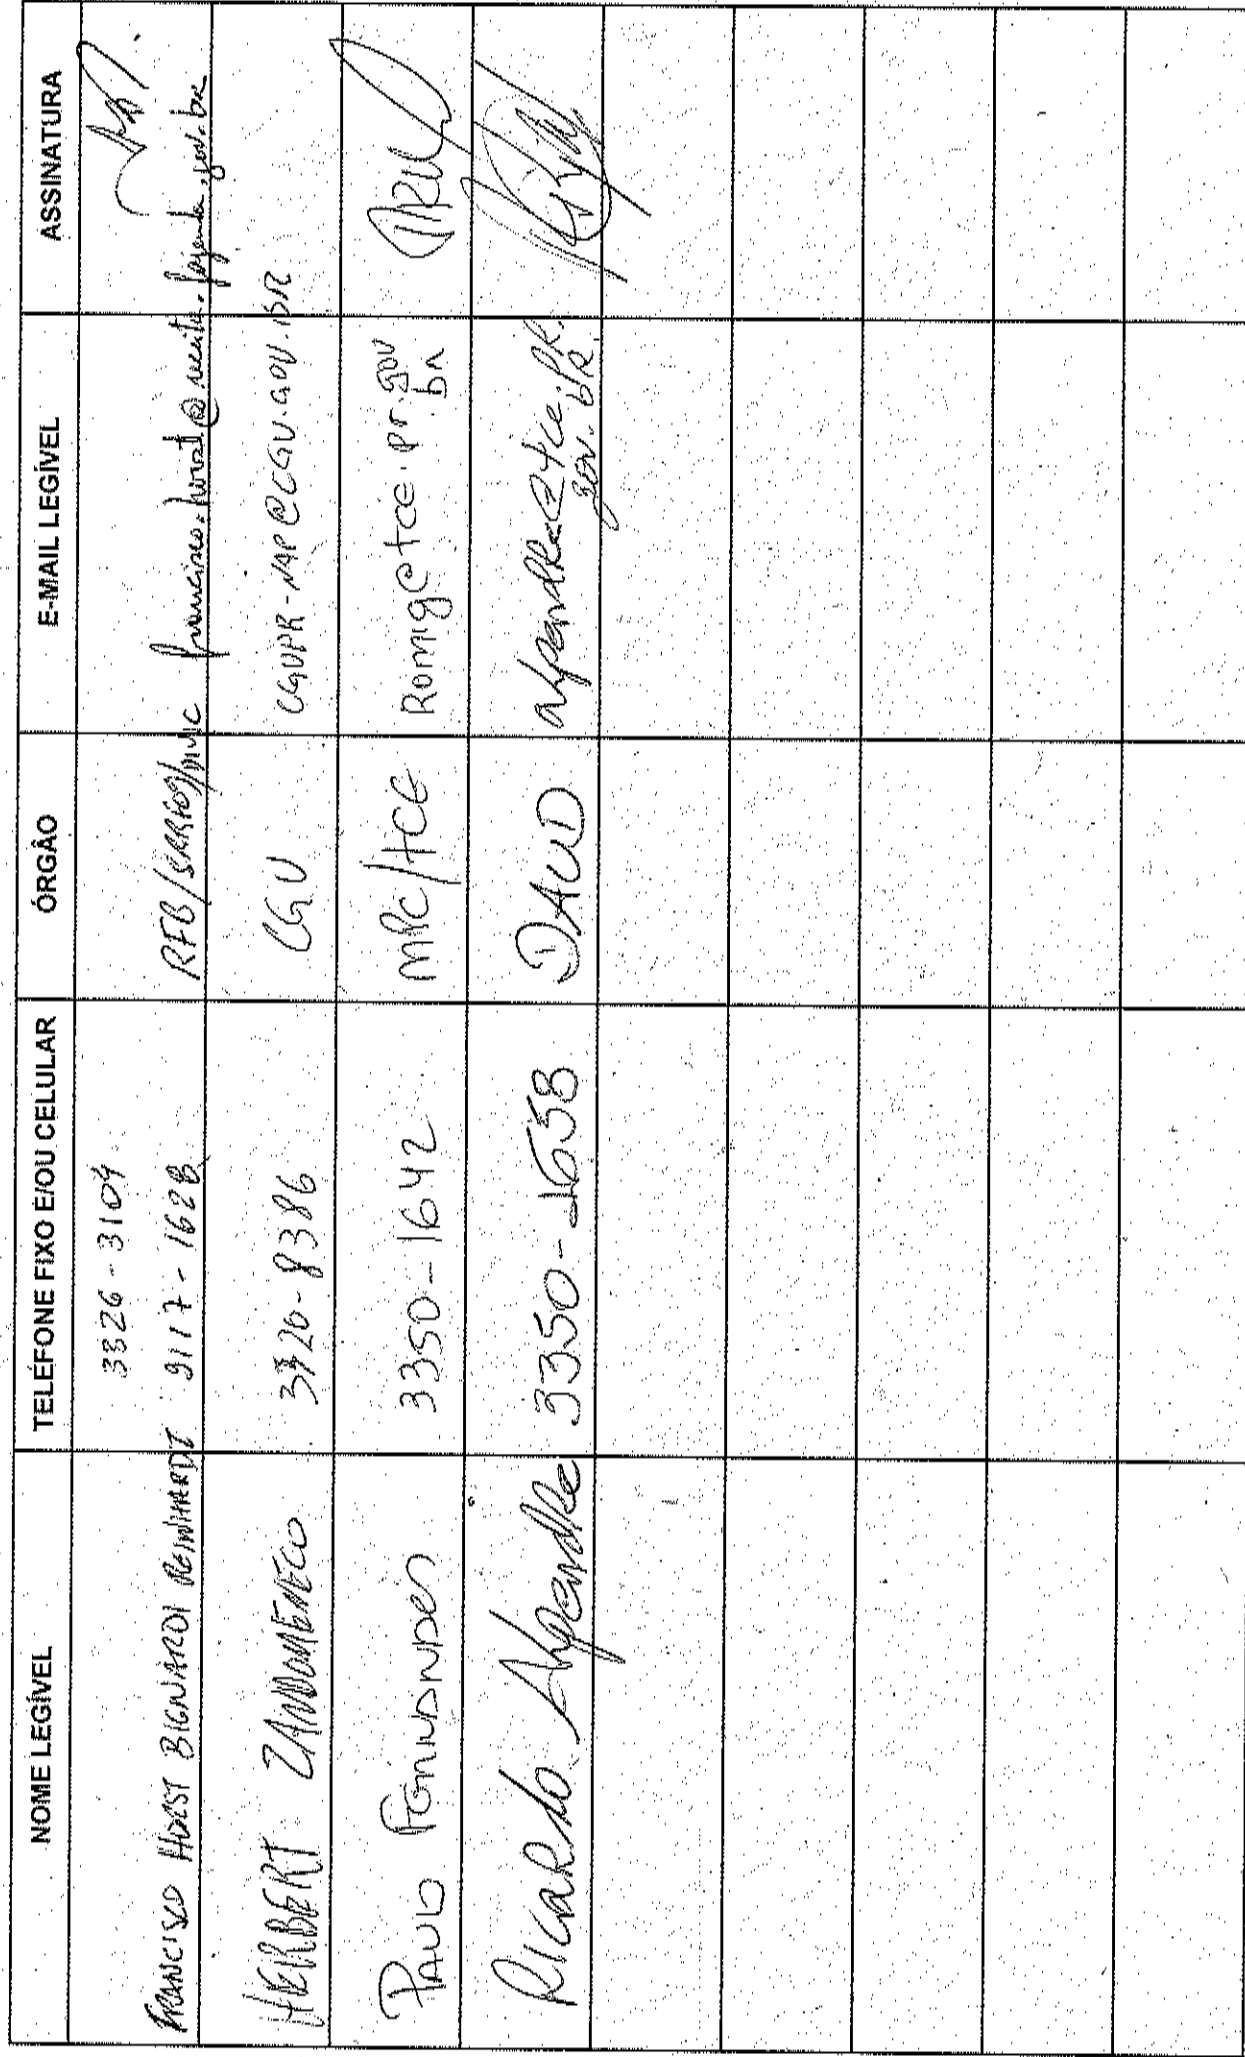 NOME LEGÍVEL TELEFONE FIXO E/OU CELULAR ÓRGÃO E-MAIL LEGÍVEL ASSINATURA
3326-3104
FRANCISCO HORST BIGNARDI REINHARDT 9117-1628 RFB/SRRF09/ francisco.horst@receita.fazenda.gov.br
HERBERT ZANDOMENECO 3320-8386 CGU CGUPR-NAP@CGU.GOV.BR
PAULO FERNANDES 3350-1642 MPC/TCE Romig@tce.pr.gov
.br
Ricardo Alpendre 3350-1658 DAUD alpendre@tce.PR.
gov.br